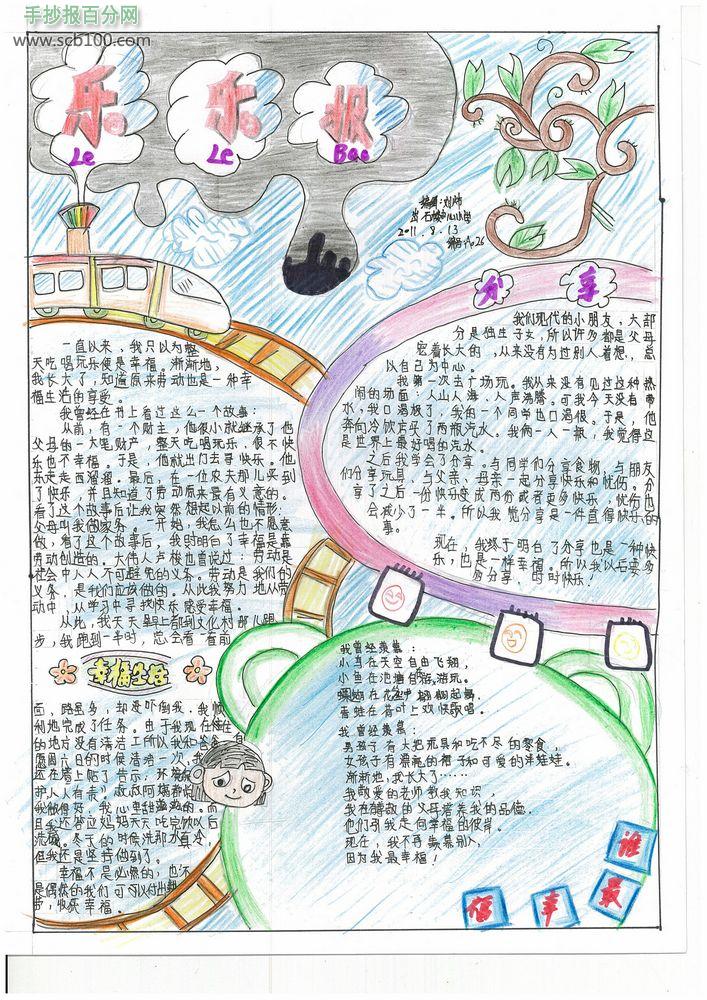 手抄报百分网
www.scb100.com
乐乐报
Le Le Bao
2011.8.13
分享
一直以来，我只以为整
天吃唱玩乐便是幸福。渐渐地，
我长大了，知道原来劳动也是一种幸
福生活的享受。
我曾经在书上看过这么一个故事：
从前，有一个财主，他很小就继承了他
父母的一大笔财产，整天吃唱玩乐，很不快
乐也不幸福。于是，他就出门去寻快乐。他
走走西溜溜。最后，在一位农夫那儿买到
了快乐，并且知道了劳动原来最有意义的。
看了这个故事后让我突然想起以前的情形：
父母叫我做家务。一开始，我怎么也不愿意
做，看了这个故事后，我明白了幸福是靠
劳动创造的。大伟人卢梭也曾说过：劳动是
社会中人人不可避免的义务。劳动是我们的
义务，是我们应该做的。从此我努力地从劳
动中，从学习中寻找快乐感受幸福。
从此，我天天早上都到文化村那儿跑
步，我跑到一半时，总会看一看前
幸福生活
面，路虽多，却是吓倒我，我顺
利地完成了任务。由于我现在住
的地方没有清洁工所以我和爸爸
愿周六日的时候清培一次，我
还在墙上贴了告示：环境保
护人人有责！叔叔阿姨都说
我做得好，我心里甜滋滋的。而
且我还答应妈妈天天吃完饭以后
洗碗。冬天的时候洗那水真冷，
但我还是坚持做到了。
幸福不是必然的，也不
是偶然的我们可以付出
步，收获幸福。
我们现代的小朋友，大部
分是独生子女，所以许多都是父母
宠着长大的，从来没有为过别人着想，总
以自己为中心。
我第一次去广场玩。我从来没有见过这种热
闹的场面：人山人海、人声沸腾。可我今天没有带
水，我口渴极了，我的一个同学也口渴极。于是，他
奔向冷饮店买了两瓶汽水。我俩一人一瓶，我觉得这
是世界上最好喝的汽水。
之后我学会了分享。与同学们分享食物，与朋友
们分享玩具，与父亲、母亲一起分享快乐和忧伤。分
享了之后一份快乐变成两份或者更多快乐，忧伤也
会减少了一半。所以我觉分享是一件值得快乐的
事。
现在，我终于明白了分享也是一种快
乐，也是一样幸福。所以我以后要多
多分享，时时快乐！
我曾经羡慕：
小鸟在天空自由飞翔，
小鱼在池塘自游游玩。
蝴蝶在花丛中翩翩起舞，
青蛙在荷叶上欢快歌唱。
我曾经羡慕：
男孩子有大把玩具和吃不尽的零食，
女孩子有漂亮的裙子和可爱的洋娃娃。
渐渐地，我长大了……
我敬爱的老师教我知识，
我在勤敬的父母培养我的品德。
他们引我走向幸福的彼岸。
现在，我不再羡慕别人，
因为我最幸福！
谁
最
幸
福